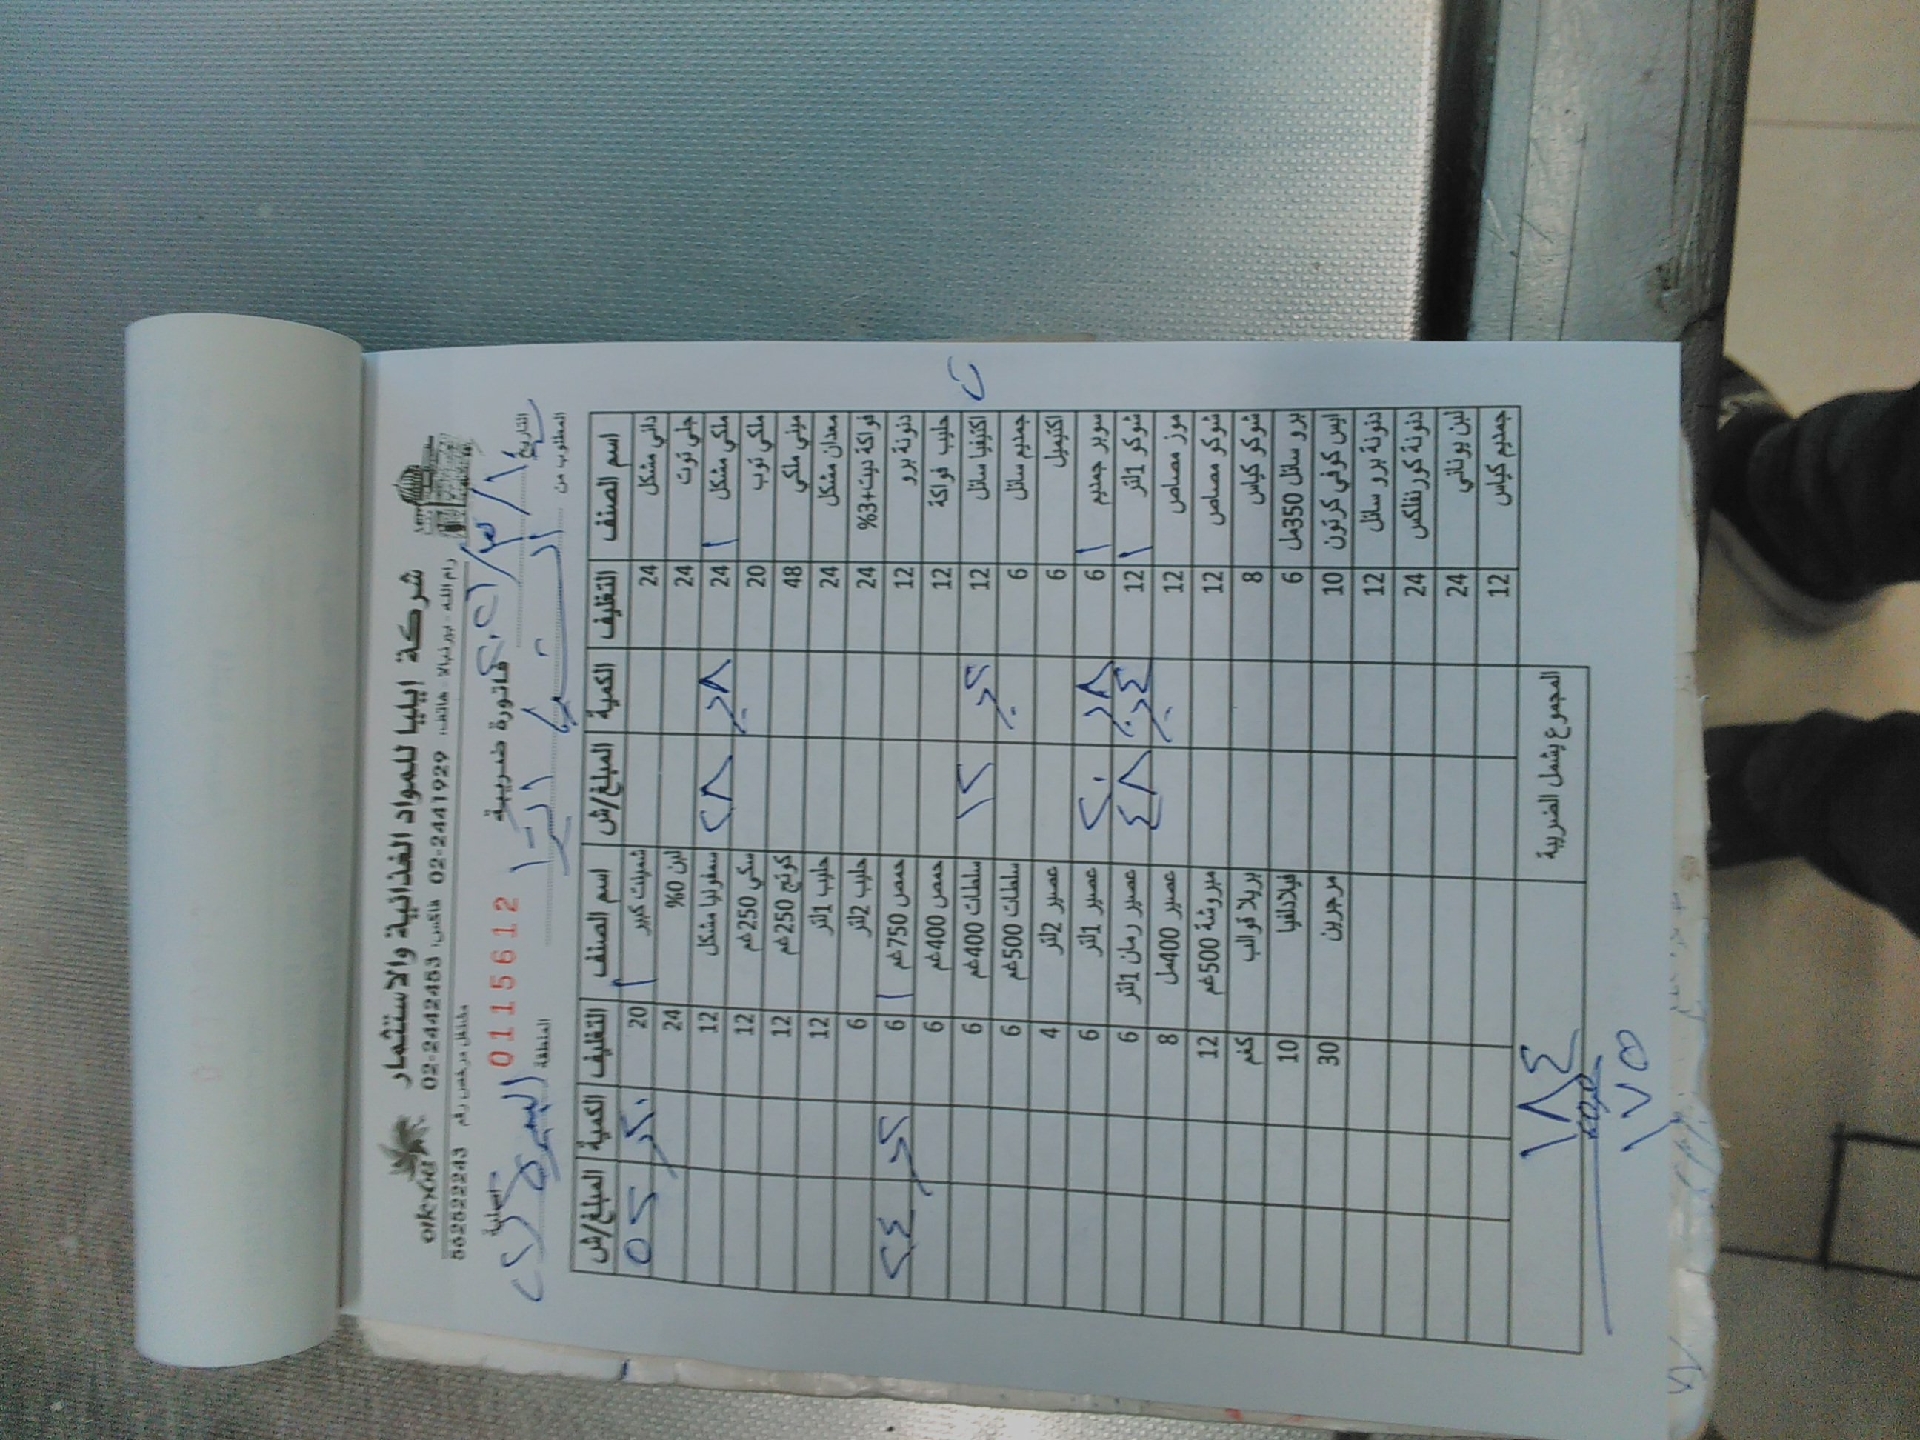 شركة ايليا للمواد الغذائية والاستثمار
رام الله - بيرنبالا هاتف: 02-2441929 فاكس: 02-2442453 مشتغل مرخص رقم 562522243
فاتورة ضريبية 0115612
التاريخ
المطلوب من
المنطقة
اسم الصنف التغليف الكمية المبلغ/ش اسم الصنف التغليف الكمية المبلغ/ش
داني مشكل 24 شمينت كبير 20 ٥٢
جلي توت 24 لبن 0% 24
ملكي مشكل 24 ٢٨ سفوليا مشكل 12
ملكي توب 20 سكي 250غم 12
ميني ملكي 48 كوتج 250غم 12
معدان مشكل 24 حليب 1لتر 12
فواكة ديت+3% 24 حليب 2لتر 6
دنونة برو 12 حمص 750غم 6 ٢٤
حليب فواكة 12 حمص 400غم 6
اكتيفيا سائل 12 ١٢ سلطات 400غم 6
جمديم سائل 6 سلطات 500غم 6
اكتيميل 6 عصير 2لتر 4
سوبر جمديم 6 ٢٠ عصير 1لتر 6
شوكو 1لتر 12 ٤٨ عصير رمان 1لتر 6
موز مصاص 12 عصير 400مل 8
شوكو مصاص 12 مبروشة 500غم 12
شوكو كياس 8 بريلا قوالب كغم
برو سائل 350مل 6 فيلادلفيا 10
ايس كوفي كرتون 10 مرجرين 30
دنونة برو سائل 12
دنونة كورنفلكس 24
لبن يوناني 24
جمديم كياس 12
المجموع يشمل الضريبة ١٨٤
١٧٥